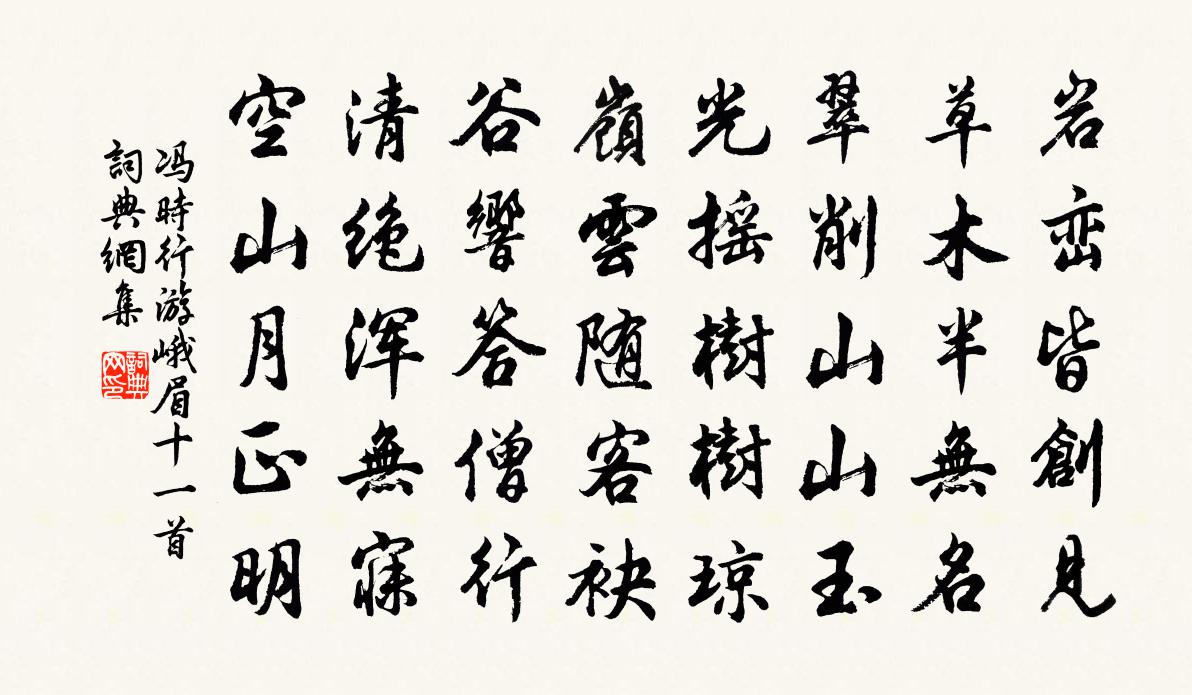 岩峦皆創見
草木半無名
翠削山山玉
光摇樹樹琼
嶺雲随客袂
谷響答僧行
清绝浑無寐
空山月正明
冯時行游峨眉十一首
詞典網集
詞典网印